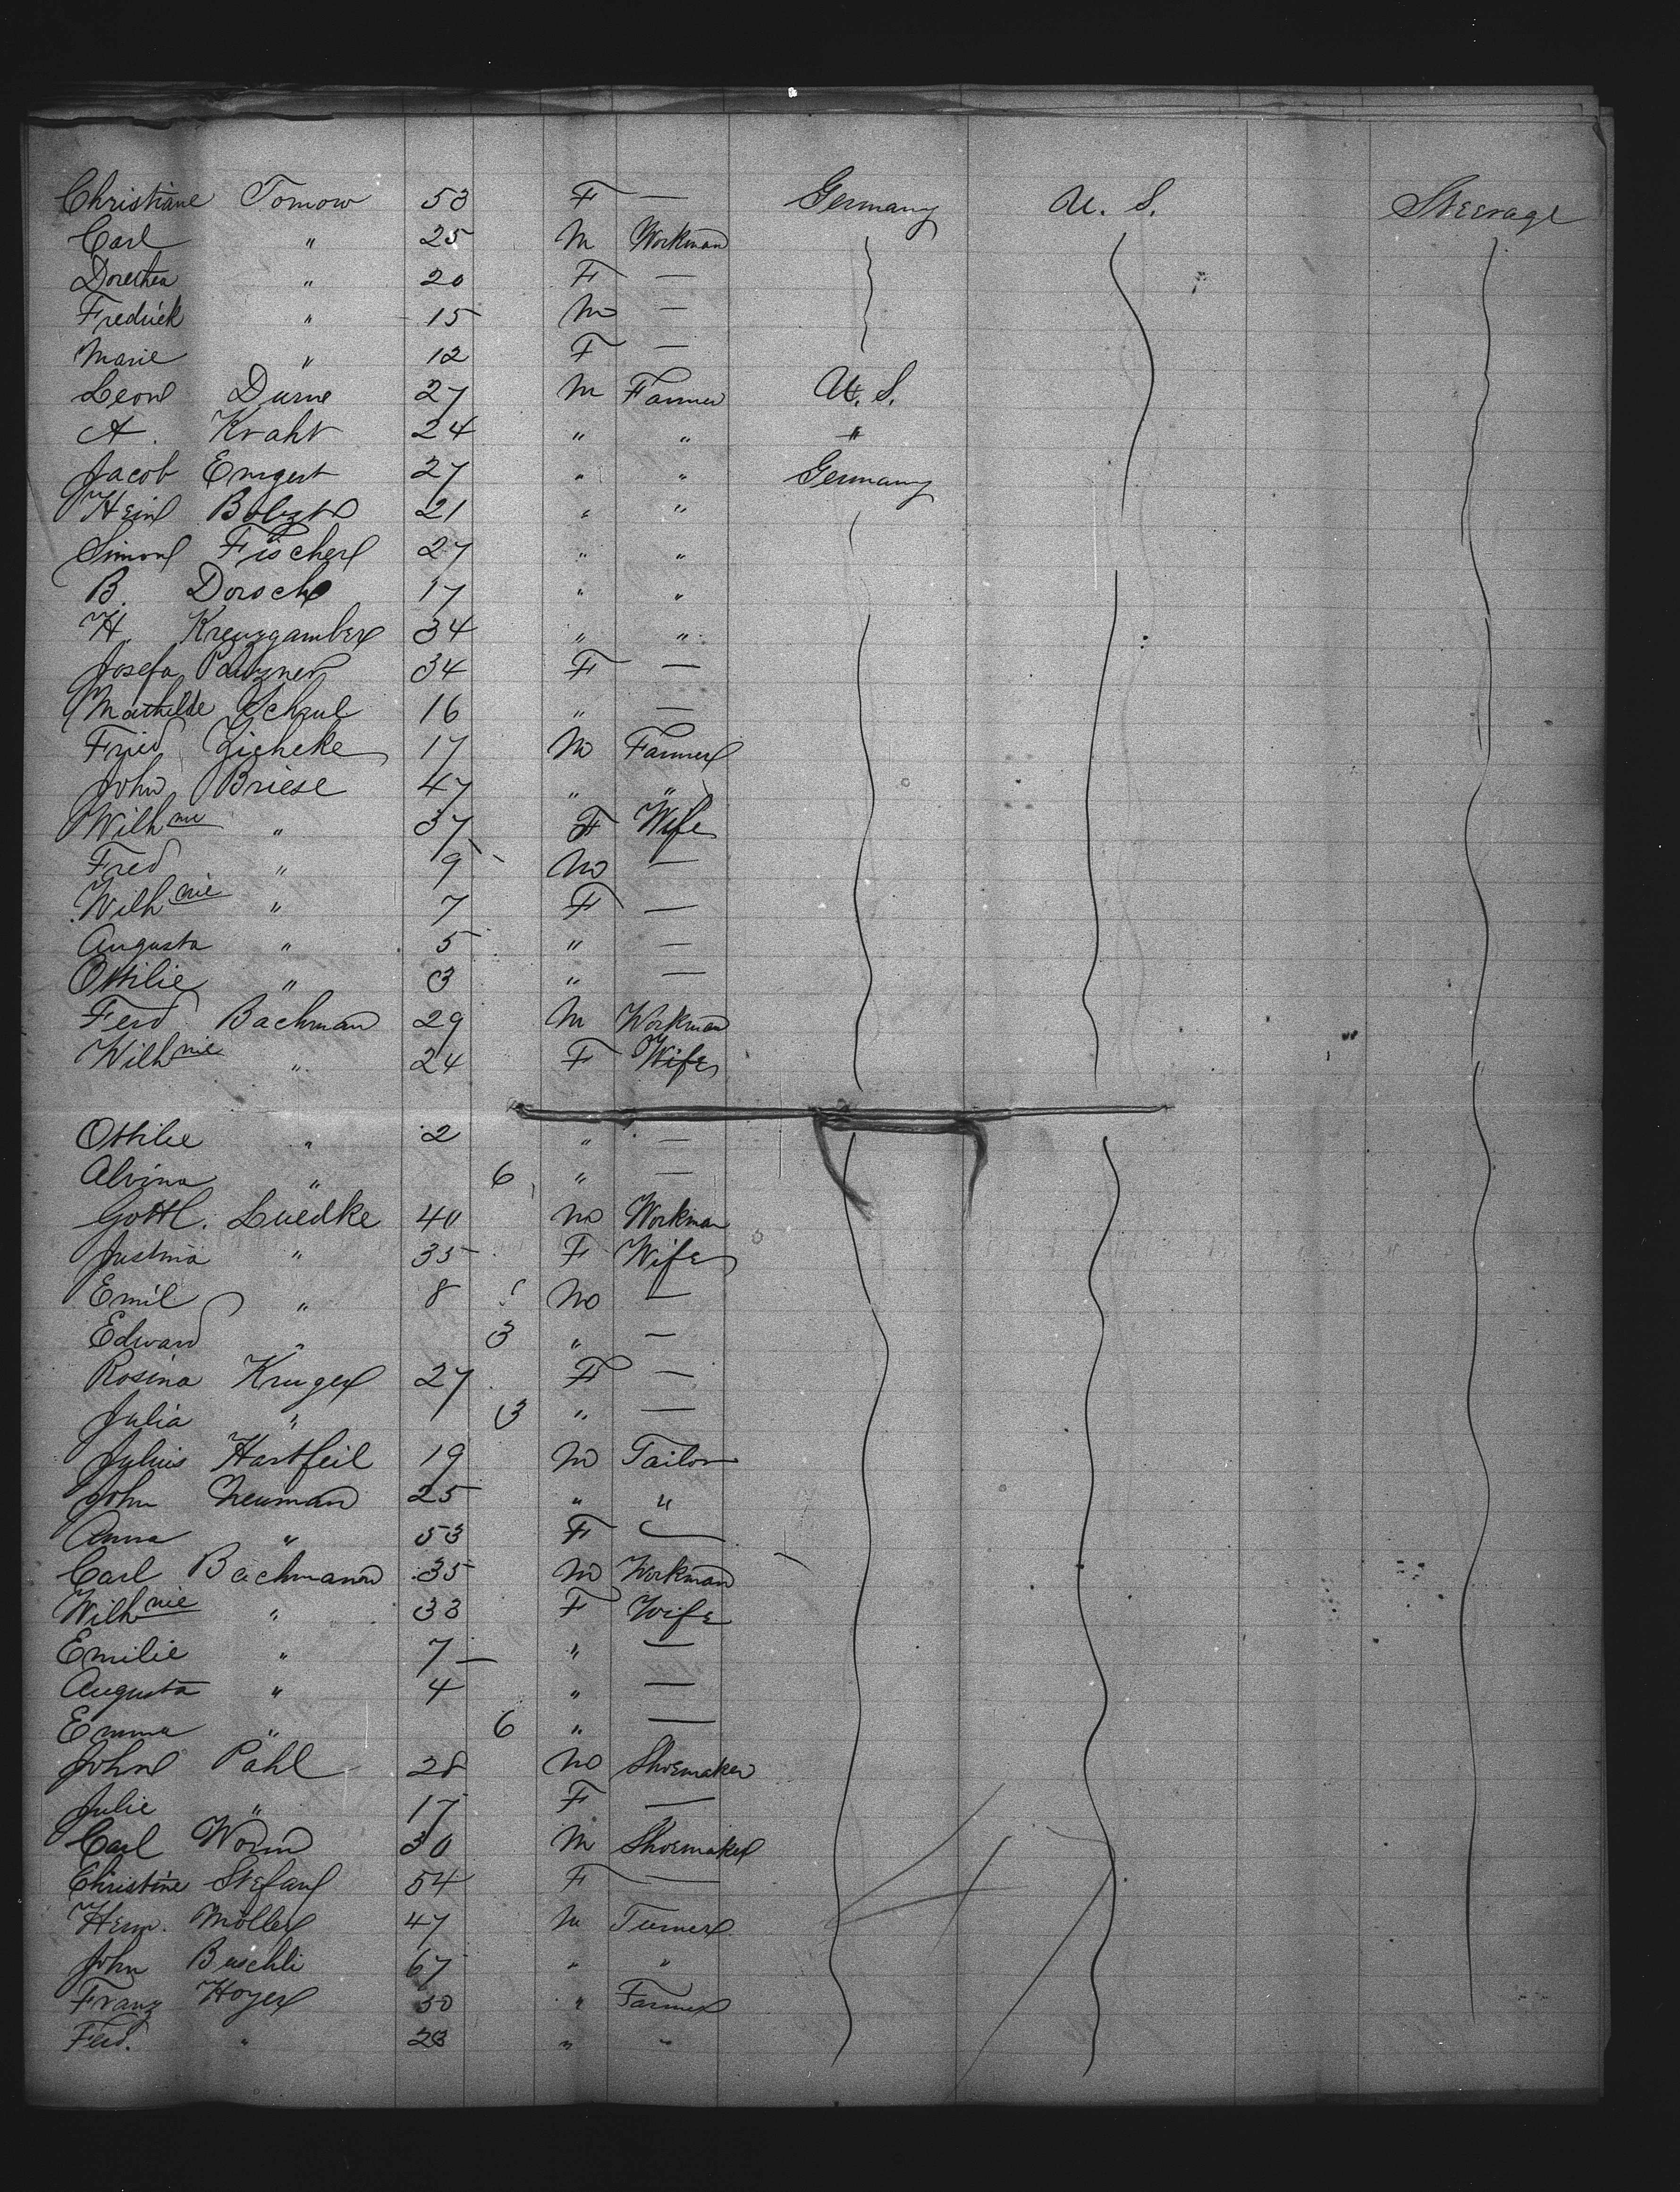 Christiane Tomow 53 F — Germany U. S. Steerage
Carl " 25 M Workman
Dorethea " 20 F —
Fredrick " 15 M —
Marie " 12 F —
Leon Durne 27 M Farmer U. S.
A. Kraht 24 " " "
Jacob Emgert 27 " " Germany
Hein 21 " "
Simon Fischer 27 " "
B. Dorsch 17 " "
H. Kreuzgamber 34 " "
Josefa 34 F —
Mathilde Schzul 16 " —
Fried Zieheke 17 M Farmer
John Briese 47 " "
Wilhme " 37 F Wife
Fred " 9 M —
Wilhnie " 7 F —
Augusta " 5 " —
Ottilie " 3 " —
Ferd Bachman 29 M Workman
Wilhnie " 24 F Wife
Ottilie " 2 " —
Alvina " 6 " —
Gottl. Luedke 40 M Workman
Justina " 35 F Wife
Emil " 8 M —
Edward " 3 " —
Rosina Kruger 27 F —
Julia " 3 " —
Julius Hartfeil 19 M Tailor
John Neuman 25 " "
Anna " 53 F —
Carl Bachmann 35 M Workman
Wilhnie " 33 F Wife
Emilie " 7 " —
Augusta " 4 " —
Emma " 6 " —
John Pahl 28 M Shoemaker
Julie " 17 F —
Carl Worm 30 M Shoemaker
Christine Stefan 54 F —
Herm. Möller 47 M Turner
John Buschli 67 " "
Franz Hoyer 30 " Farmer
Ferd. " 23 " "